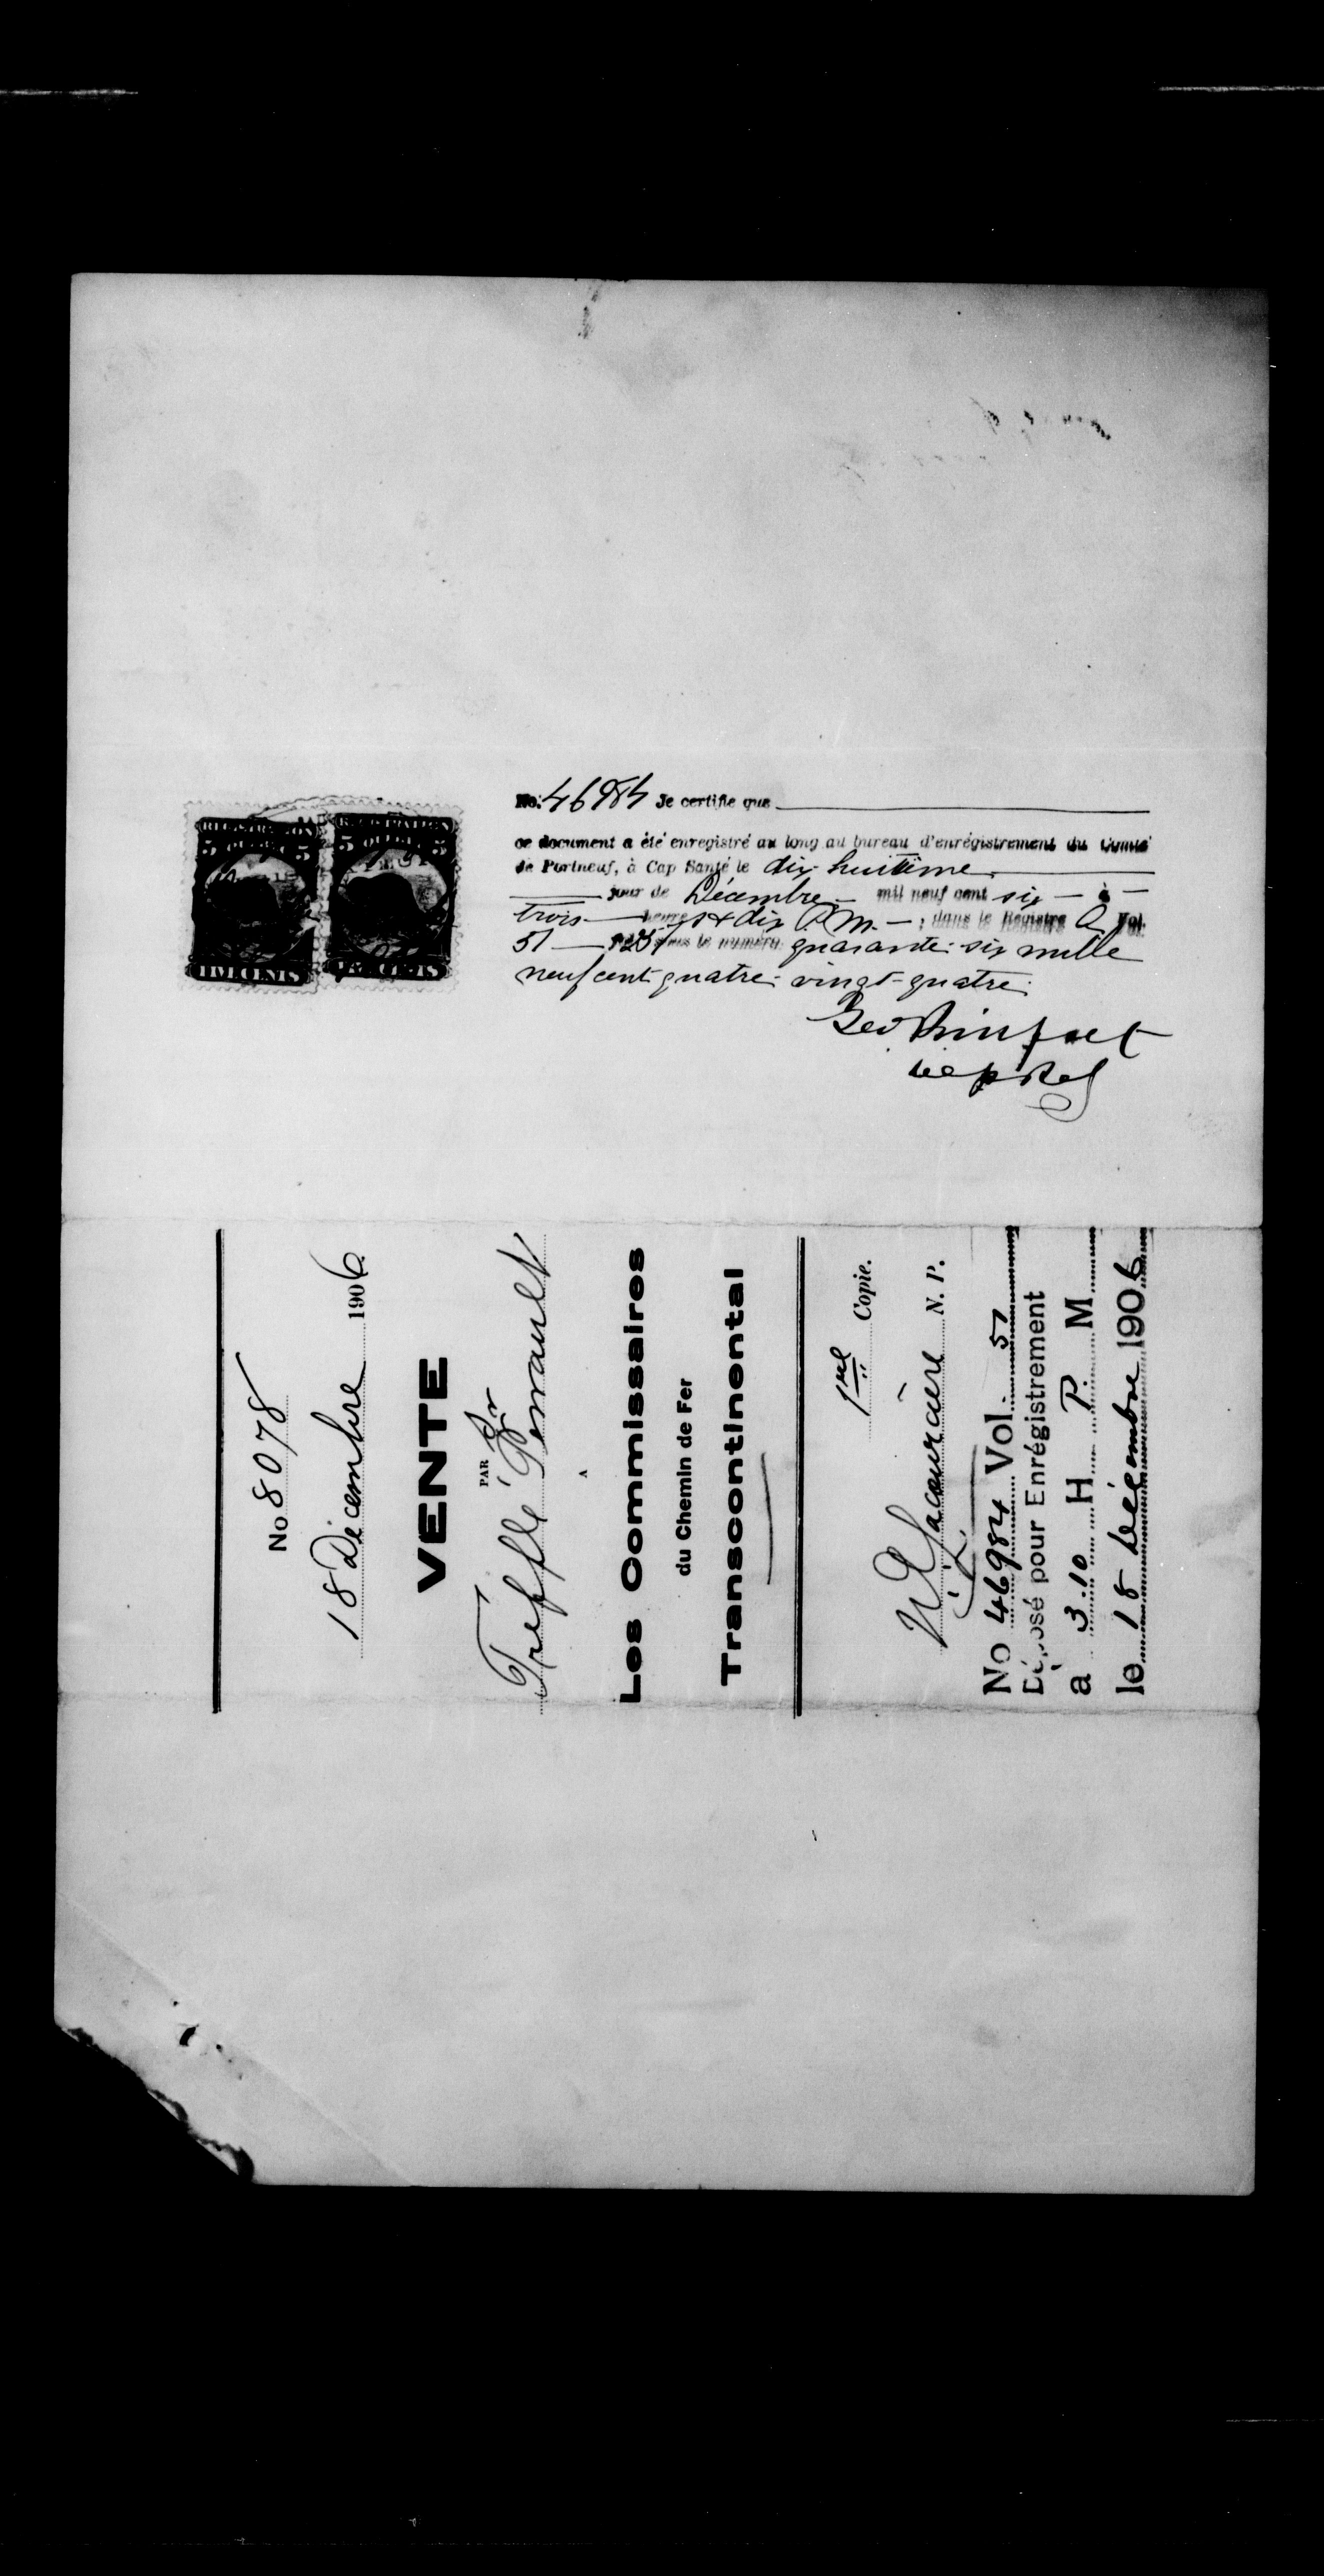 REGISTRATION
5 QUEBEC 5
FIVE CENTS
REGISTRATION
5 QUEBEC 5
FIVE CENTS
No. 46984 Je certifie que
ce document a été enregistré au long au bureau d'enrégistrement du Comté
de Portneuf, à Cap Santé le dix-huitième
jour de Décembre mil neuf cent six à
trois heures & dix P.M. ; dans le Régistre A Vol.
51 sous le numéro quarante-six mille
neuf cent quatre-vingt-quatre
No 8078
18 Décembre 1906
VENTE
PAR
Treffle Perrault
A
Les Commissaires
du Chemin de Fer
Transcontinental
1re Copie.
N. P.
No 46984 Vol. 51
Déposé pour Enrégistrement
a 3.10 H P. M
le 18 Décembre 1906